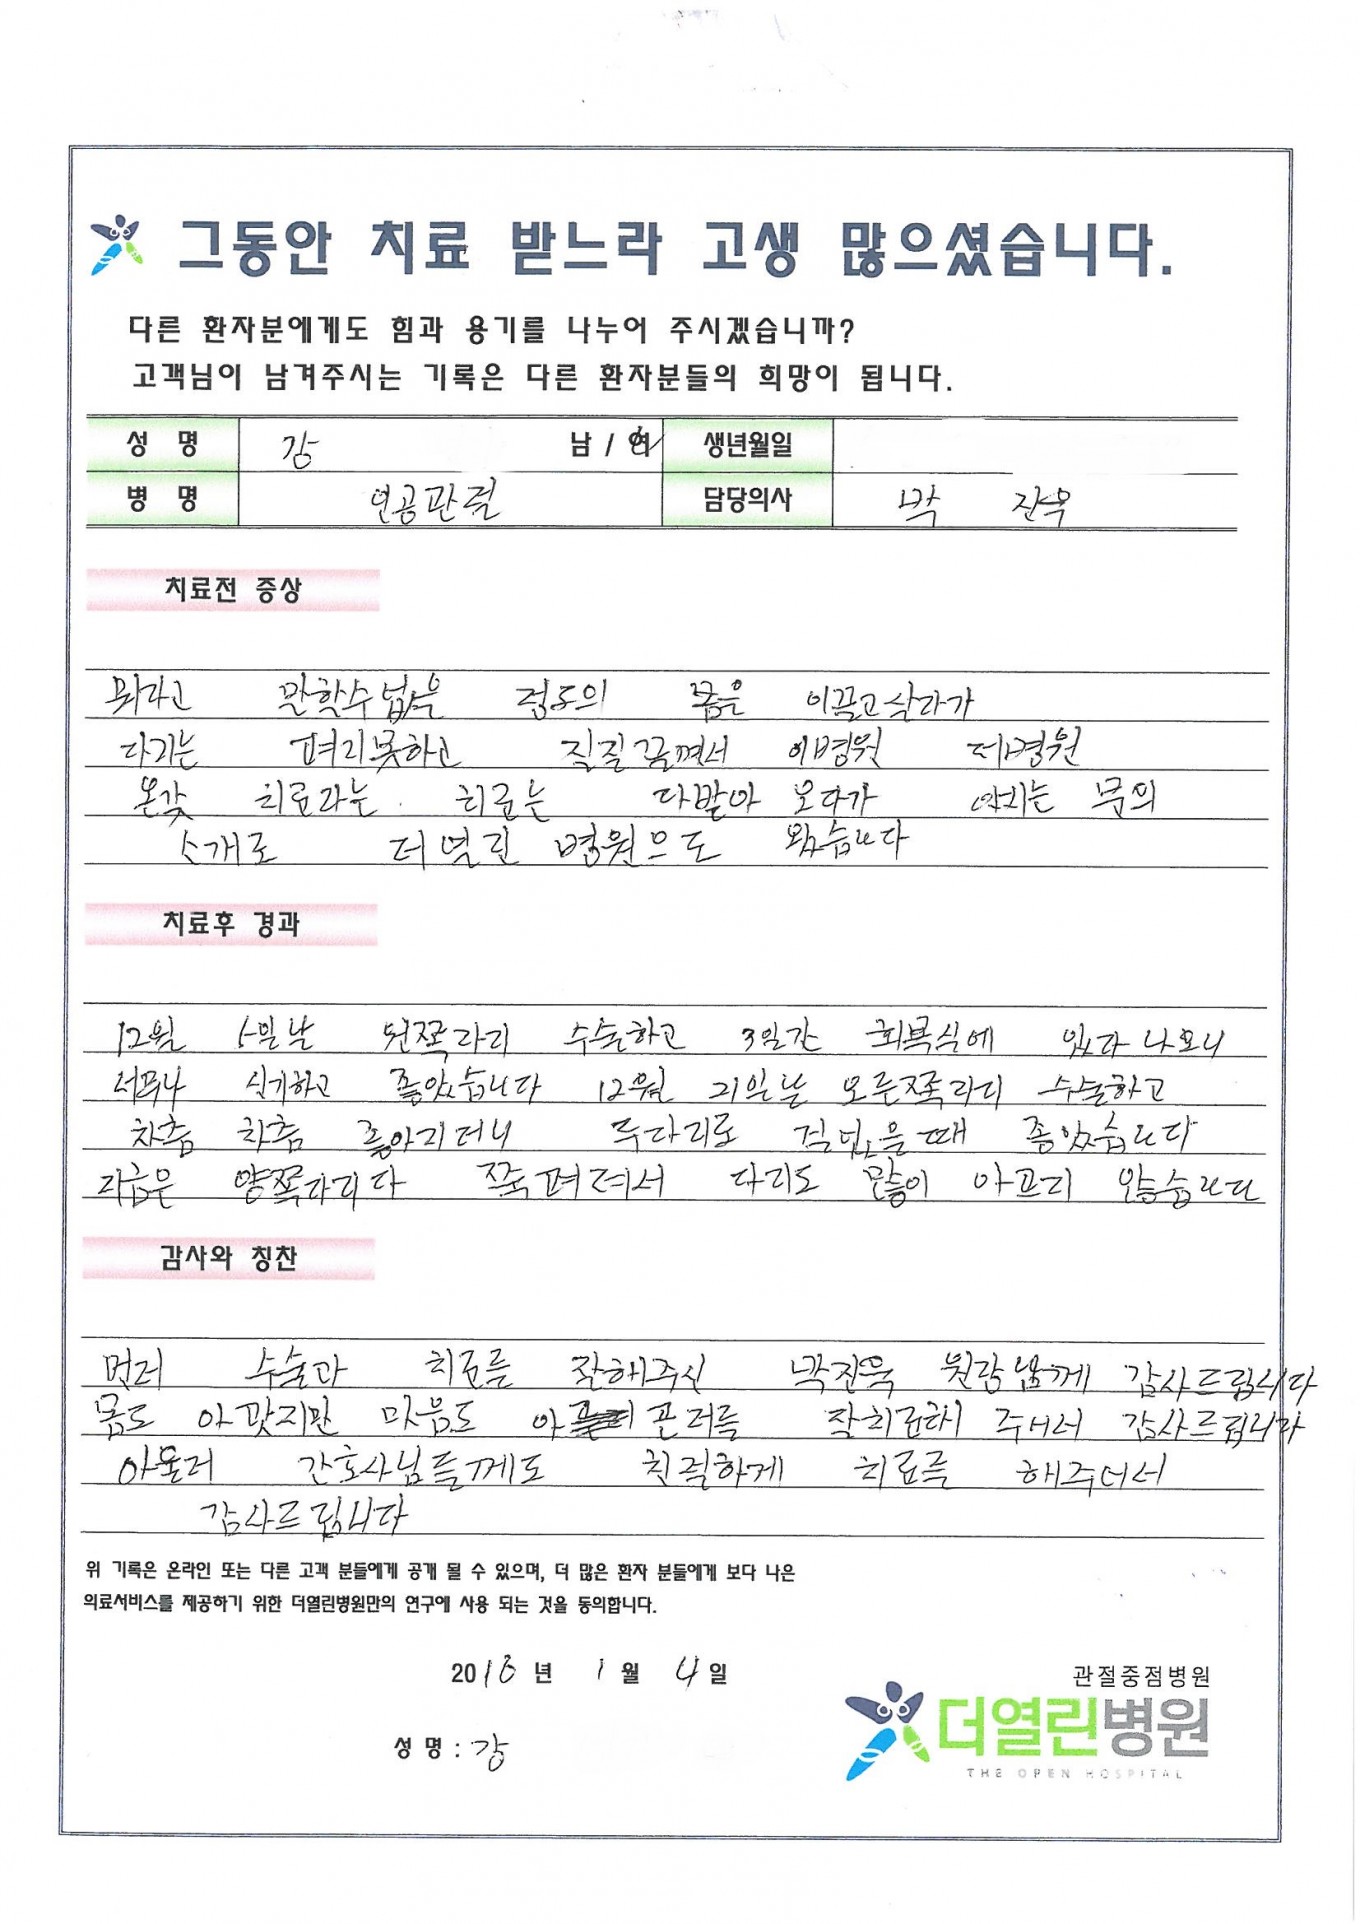 그동안 치료 받느라 고생 많으셨습니다.
다른 환자분에게도 힘과 용기를 나누어 주시겠습니까?
고객님이 남겨주시는 기록은 다른 환자분들의 희망이 됩니다.
성 명 강 남 / 여 생년월일
병 명 인공관절 담당의사 박 진욱
치료전 증상
뭐라고 말할수 없을 정도의 몸은 이끌고 살다가
다리는 펴지못하고 질질끌면서 이병원 저병원
온갖 치료라는 치료는 다받아 오다가 아는 분의
소개로 더열린 병원으로 왔습니다
치료후 경과
12월 5일날 왼쪽다리 수술하고 3일간 회복실에 있다 나오니
너무나 신기하고 좋았습니다 12월 21일날 오른쪽다리 수술하고
차츰 차츰 좋아지더니 두다리로 걸었을때 좋았습니다
지금은 양쪽다리다 쭉펴져서 다리도 많이 아프지 않습니다
감사와 칭찬
먼저 수술과 치료를 잘해주신 박진욱 원장님께 감사드립니다
몸도 아팠지만 마음도 아 곤저를 잘치료해 주셔서 감사드립니다
아울러 간호사님들께도 친절하게 치료를 해주셔서
감사드립니다
위 기록은 온라인 또는 다른 고객 분들에게 공개 될 수 있으며, 더 많은 환자 분들에게 보다 나은
의료서비스를 제공하기 위한 더열린병원만의 연구에 사용 되는 것을 동의합니다.
2016년 1월 4일
관절중점병원
더열린병원
THE OPEN HOSPITAL
성 명 : 강